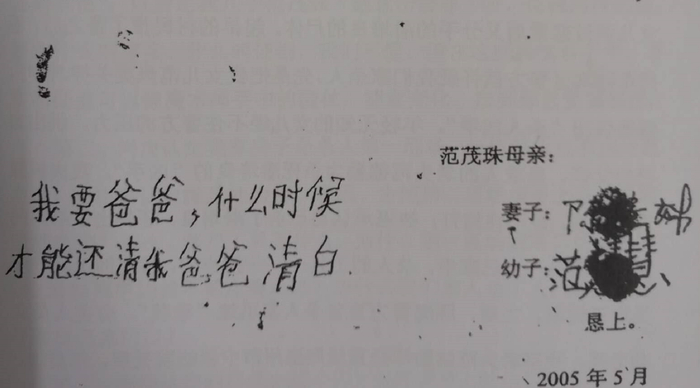 范茂珠母亲：
我要爸爸，什么时候
才能还清我爸爸清白.
妻子：
幼子：范
恳上。
2005年5月